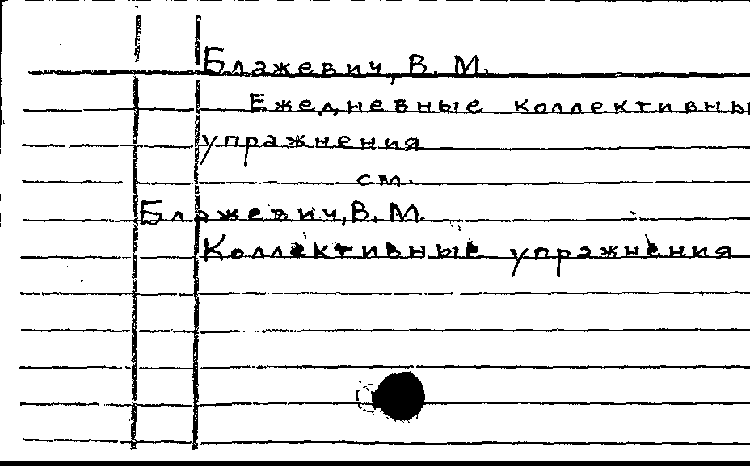 Блажевич, В. М.
Ежедневные коллективны
упражнения
см.
Блажевич, В. М.
Коллективные упражнения